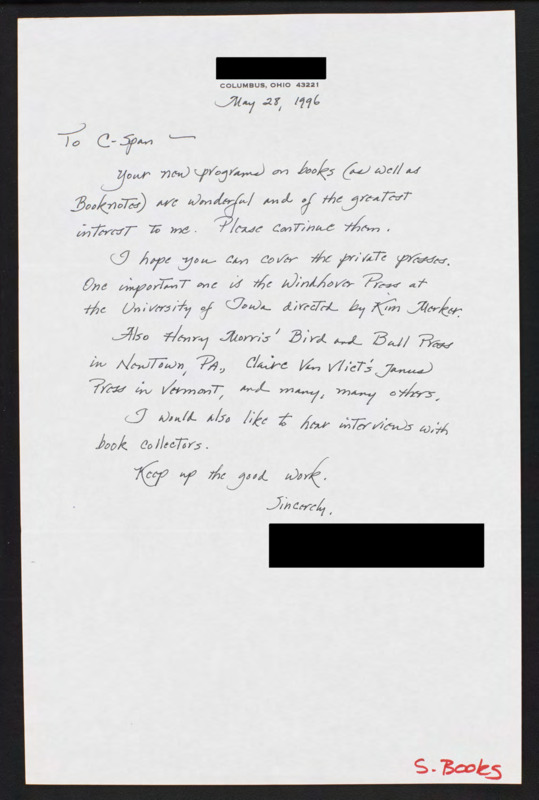 COLUMBUS, OHIO 43221
May 28, 1996
To C-Span —
Your new programs on books (as well as
Booknotes) are wonderful and of the greatest
interest to me. Please continue them.
I hope you can cover the private presses.
One important one is the Windhover Press at
the University of Iowa directed by Kim Merker.
Also Henry Morris' Bird and Bull Press
in Newtown, PA., Claire Van Vliet's Janus
Press in Vermont, and many, many others.
I would also like to hear interviews with
book collectors.
Keep up the good work.
Sincerely,
S. Books